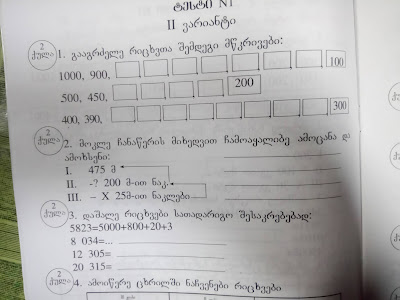 ტესტი N1
II ვარიანტი
2 ქულა
1. გააგრძელე რიცხვთა შემდეგი მწკრივები:
1000, 900, 100
500, 450, 200
400, 390, 300
2 ქულა
2. მოკლე ჩანაწერის მიხედვით ჩამოაყალიბე ამოცანა და
ამოხსენი:
I. 475 მ
II. -? 200 მ-ით ნაკ.
III. – X 25მ-ით ნაკლები
2 ქულა
3. დაშალე რიცხვები სათადარიგო შესაკრებებად:
5823=5000+800+20+3
8 034=...
12 305=
20 315=
2 ქულა
4. ამოიწერე ცხრილში ნაჩვენები რიცხვები